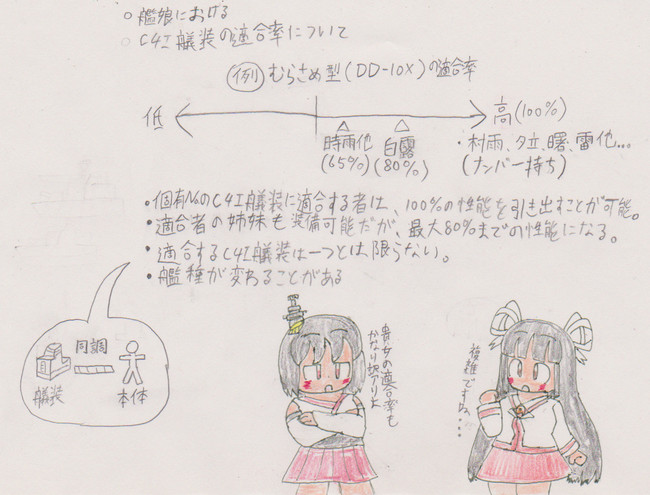 ○艦娘における
○C4I艤装の適合率について
例 むらさめ型(DD-10X)の適合率
低
高(100%)
時雨他
(65%)
白露
(80%)
・村雨、夕立、曙、雷他…
(ナンバー持ち)
・個有№のC4I艤装に適合する者は、100%の性能を引き出すことが可能。
・適合者の姉妹も装備可能だが、最大80%までの性能になる。
・適合するC4I艤装は一つとは、限らない。
・艦種が変わることがある
同調
艤装
本体
貴女の適合率も
かなり訳アリよ
複雑ですね・・・